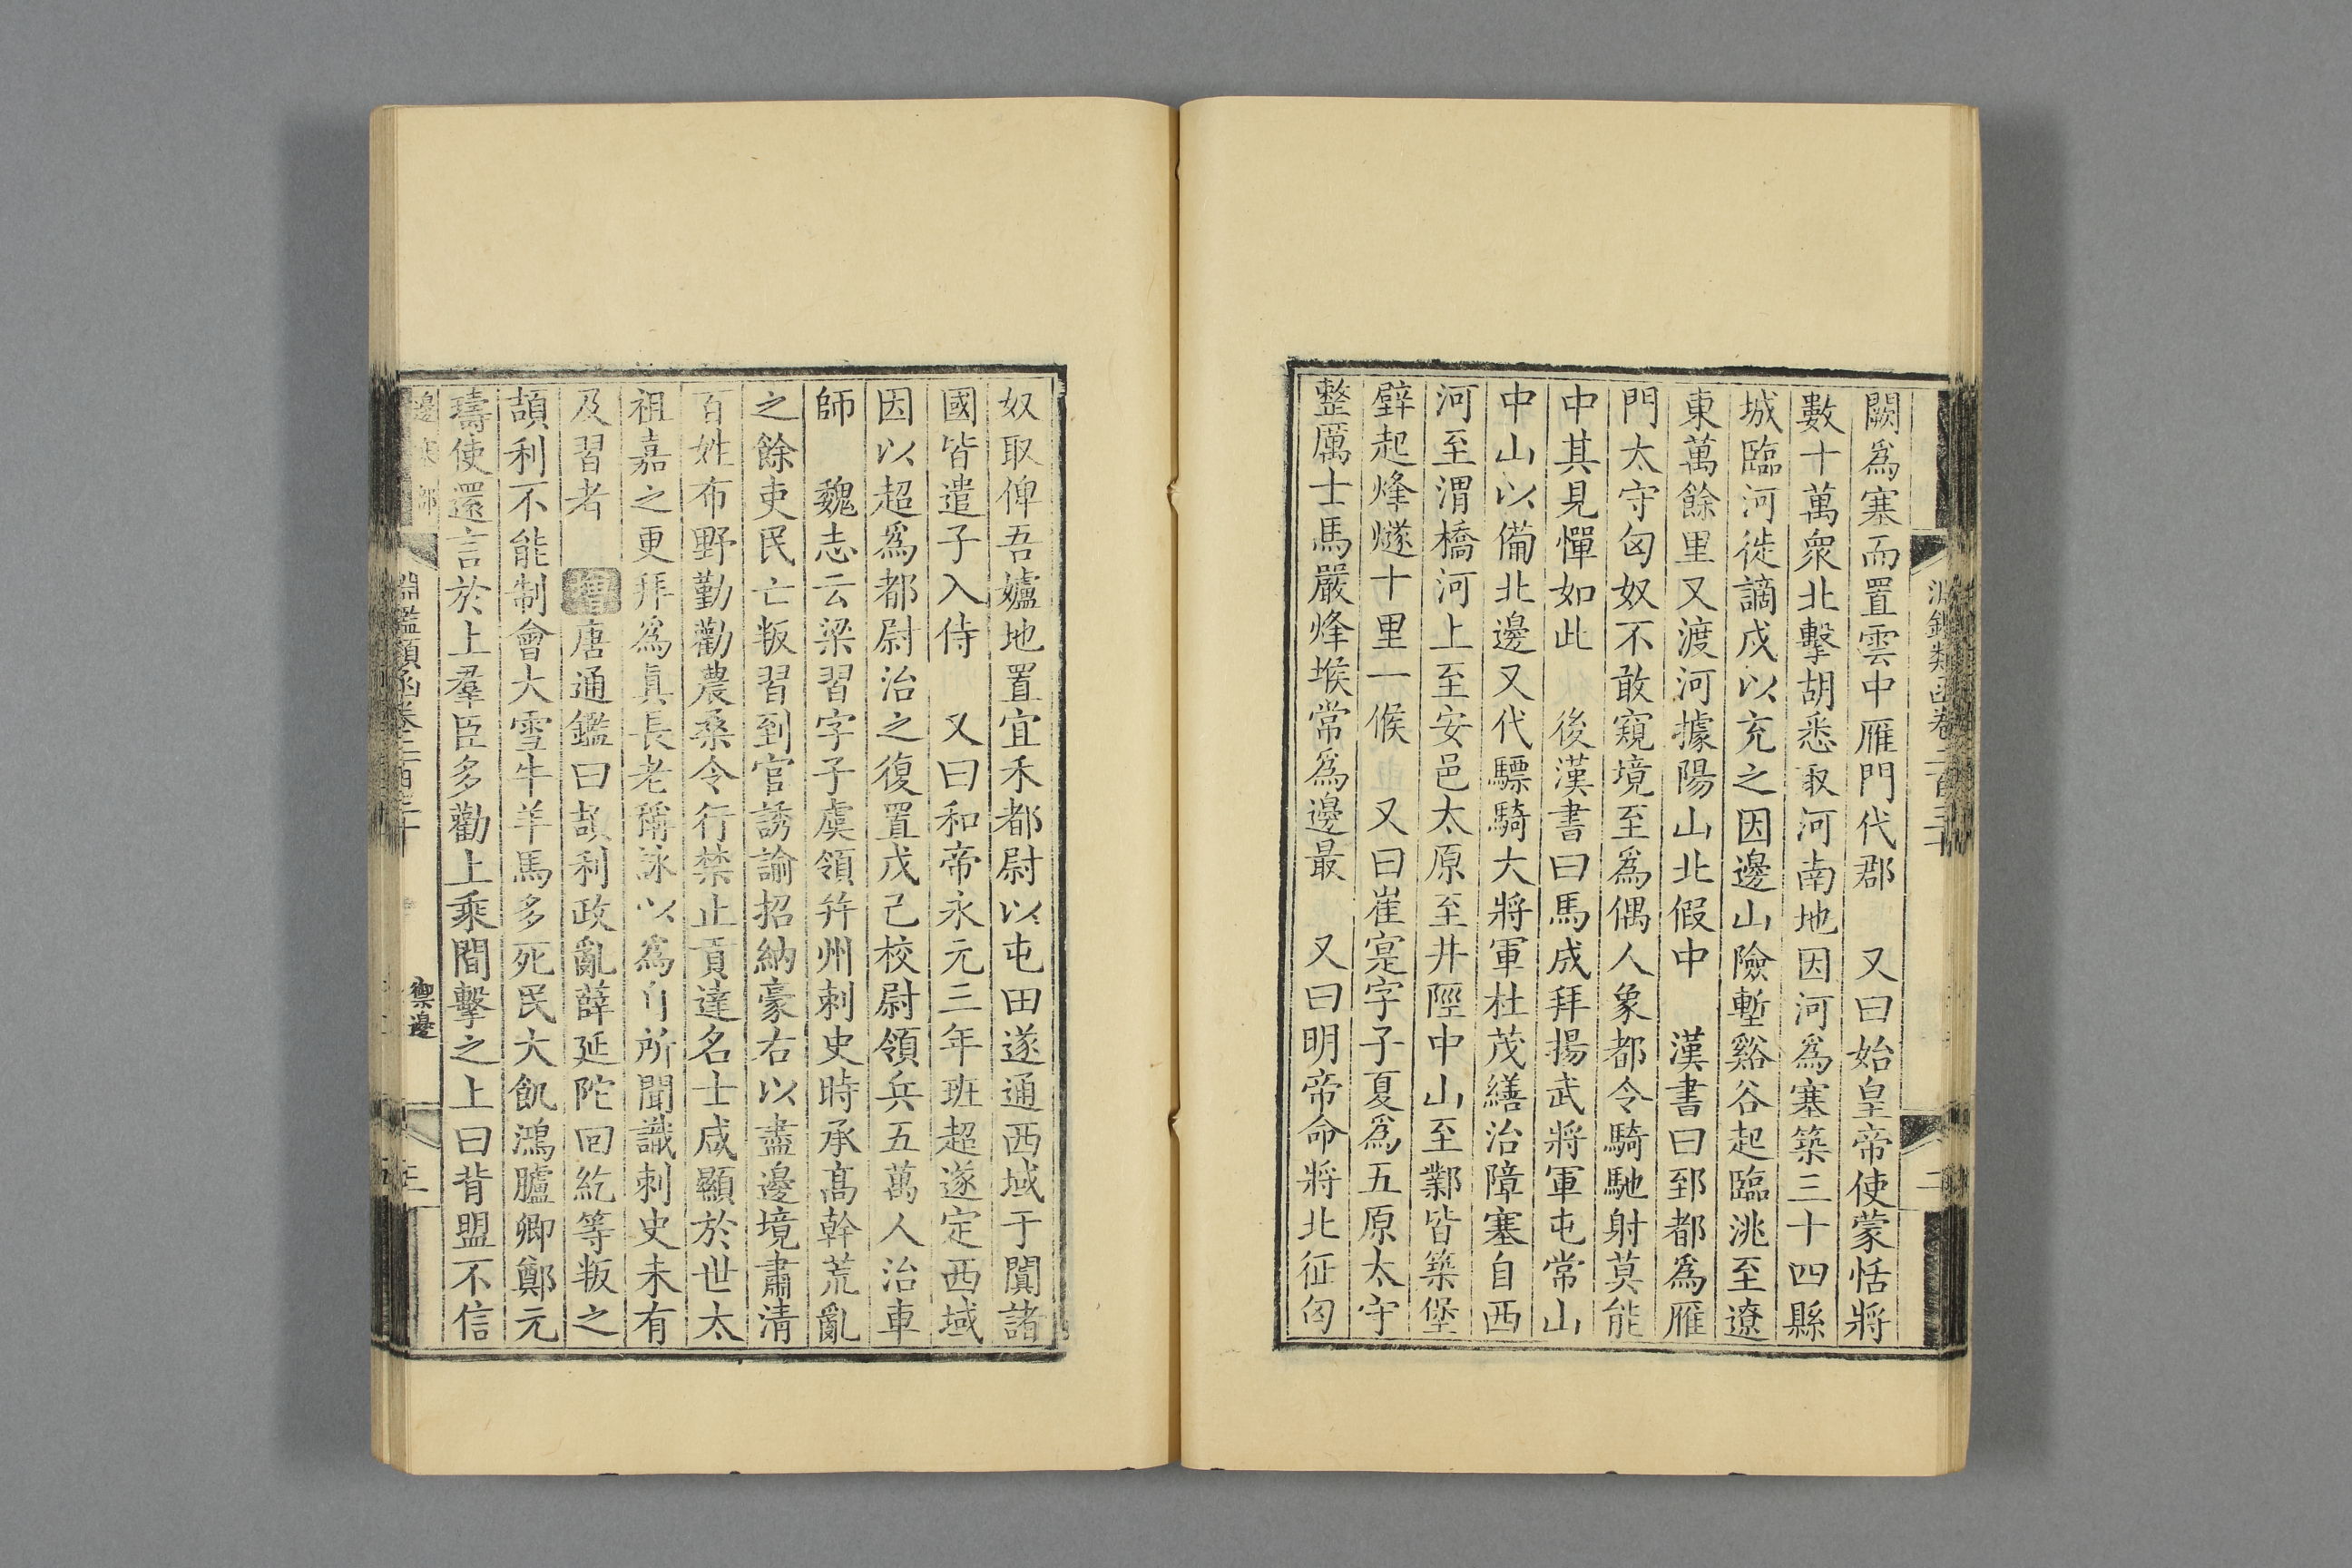 闕爲塞而置雲中雁門代郡　又曰始皇帝使蒙恬將
數十萬衆北擊胡悉取河南地因河爲塞築三十四縣
城臨河徙謫戍以充之因邊山險塹谿谷起臨洮至遼
東萬餘里又渡河據陽山北假中　漢書曰郅都爲雁
門太守匈奴不敢窺境至爲偶人象都令騎馳射莫能
中其見憚如此　後漢書曰馬成拜揚武將軍屯常山
中山以備北邊又代驃騎大將軍杜茂繕治障塞自西
河至渭橋河上至安邑太原至井陘中山至鄴皆築堡
壁起烽燧十里一候　又曰崔寔字子夏爲五原太守
整厲士馬嚴烽堠常爲邊最　又曰明帝命將北征匈
奴取俾吾爐地置宜禾都尉以屯田遂通西域于闐諸
國皆遣子入侍　又曰和帝永元三年班超遂定西域
因以超爲都尉治之復置戊己校尉領兵五萬人治車
師　魏志云梁習字子虞領幷州刺史時承高幹荒亂
之餘吏民亡叛習到官誘諭招納豪右以盡邊境肅清
百姓布野勤勸農桑令行禁止貢達名士咸顯於世太
祖嘉之更拜爲眞長老稱詠以爲自所聞識刺史未有
及習者　增唐通鑑曰頡利政亂薛延陀回紇等叛之
頡利不能制會大雪牛羊馬多死民大飢鴻臚卿鄭元
璹使還言於上羣臣多勸上乘間擊之上曰背盟不信
淵鑑類函卷二百三十
禦邊
三